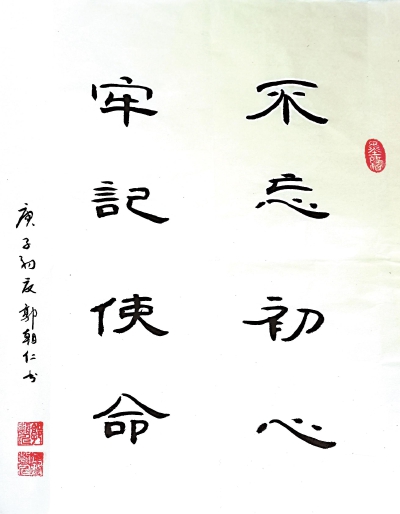 不忘初心
牢記使命
庚子初夏郭朝仁书